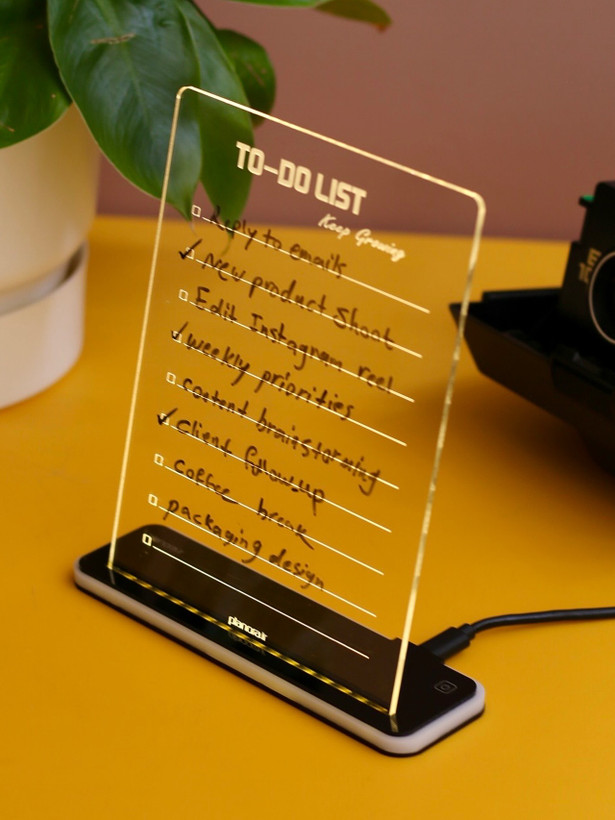 TO-DO LIST
Keep Growing
Reply to emails
New product Shoot
Edit Instagram reel
weekly priorities
content brainstorming
client followup
coffee break
packaging design
planora.ir